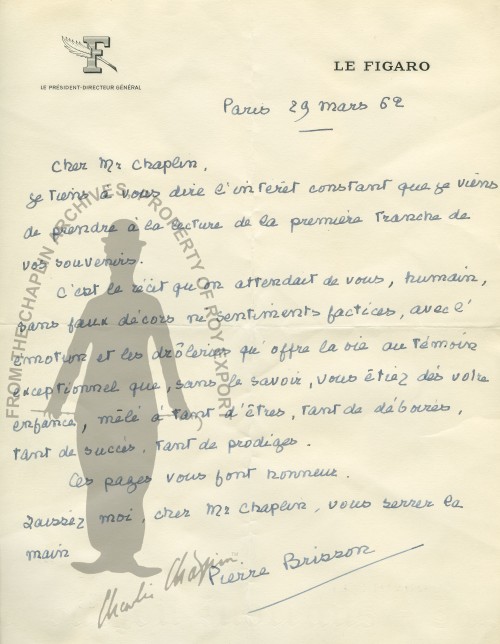 F
LE PRÉSIDENT-DIRECTEUR GÉNÉRAL
LE FIGARO
Paris 29 mars 62
Cher Mr Chaplin,
je tiens à vous dire l'intérêt constant que je viens
de prendre à la lecture de la première tranche de
vos souvenirs.
C'est le récit qu'on attendait de vous, humain,
sans faux décors ni sentiments factices, avec l'
émotion et les drôleries qu'offre la vie au témoin
exceptionnel que, sans le savoir, vous étiez dès votre
enfance, mêlé à tant d'êtres, tant de déboires,
tant de succès, tant de prodiges.
Ces pages vous font honneur.
Laissez moi, cher Mr Chaplin, vous serrer la
main
Pierre Brisson
FROM THE CHAPLIN ARCHIVES, PROPERTY OF ROY EXPORT
Charlie Chaplin